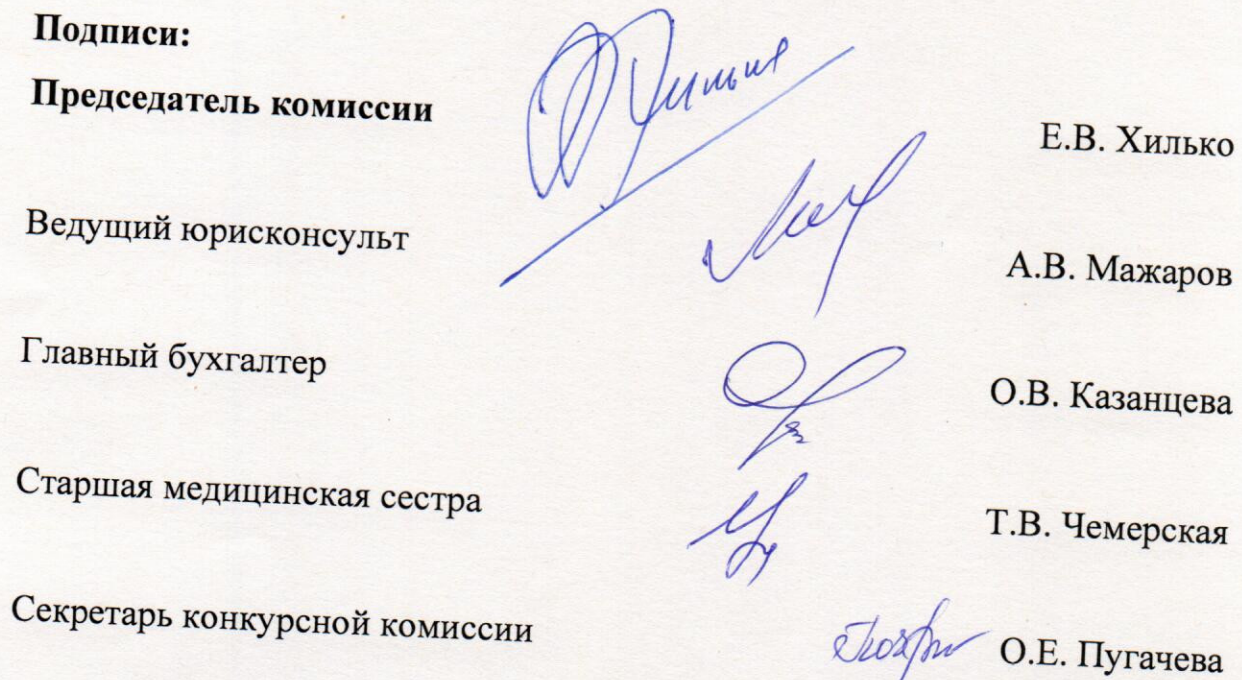 Подписи:
Председатель комиссии Е.В. Хилько
Ведущий юрисконсульт А.В. Мажаров
Главный бухгалтер О.В. Казанцева
Старшая медицинская сестра Т.В. Чемерская
Секретарь конкурсной комиссии О.Е. Пугачева